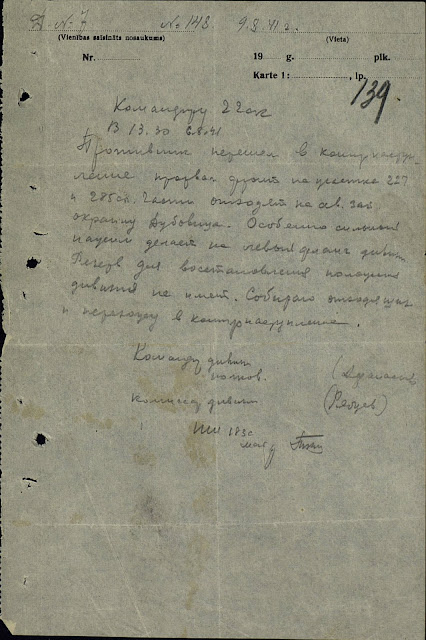 Д. № 7 № 148 9.8.41 г.
(Vienības saīsināts nosaukums) (Vieta)
Nr. 19 g. plk.
Karte 1: , lp.
139
Командиру 22 ск
В 13.30 8.8.41
Противник перешел в контрнаступ-
ление прорвал фронт на участке 227
и 285 сп. Части отходят на сев. зап.
окраину Дубовица. Особенно сильный
нажим делает на левый фланг дивизии
Резерв для восстановления положения
дивизия не имеет. Собираю отходящих
и перехожу в контрнаступление.
Командир дивизии
комиссар дивизии
НШ 183 сд